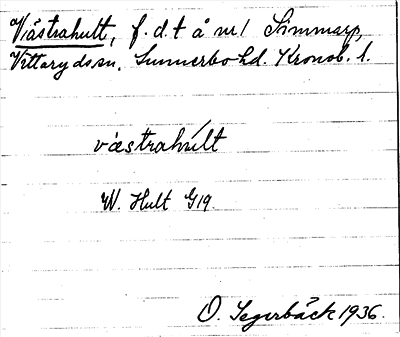 Västrahult, f.d.t å nr 1 Simmarp,
Vittaryds sn. Sunnerbo hd. Kronob. l.
våstrahúlt
W. Hult G19.
O. Segerbäck 1936.